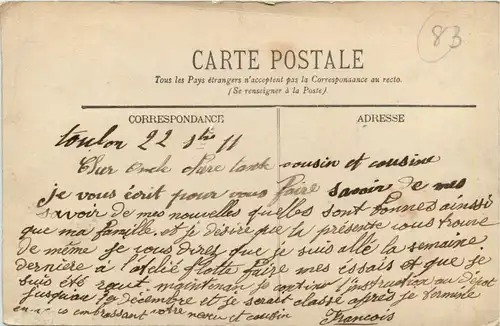 83
CARTE POSTALE
Tous les Pays étrangers n'acceptent pas la Correspondance au recto.
(Se renseigner à la Poste).
CORRESPONDANCE
ADRESSE
toulon 22 11
Cher oncle chere tante cousin et cousine
je vous écrit pour vous faire savoir de mes
savoir de mes nouvelles quelles sont bonnes ainssi
que ma famille. et je désire que la présente vous trouve
de même je vous direz que je suis allé la semaine
dernière à flotte faire mes éssais et que je
suis été maintenan je continu l'instruction au dépot
jusquau 1e décembre et je serait classé après je termine
en embrassant votre neveu et cousin François